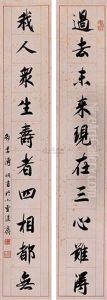 過去未來現在三心難得
我人眾生壽者四相都無